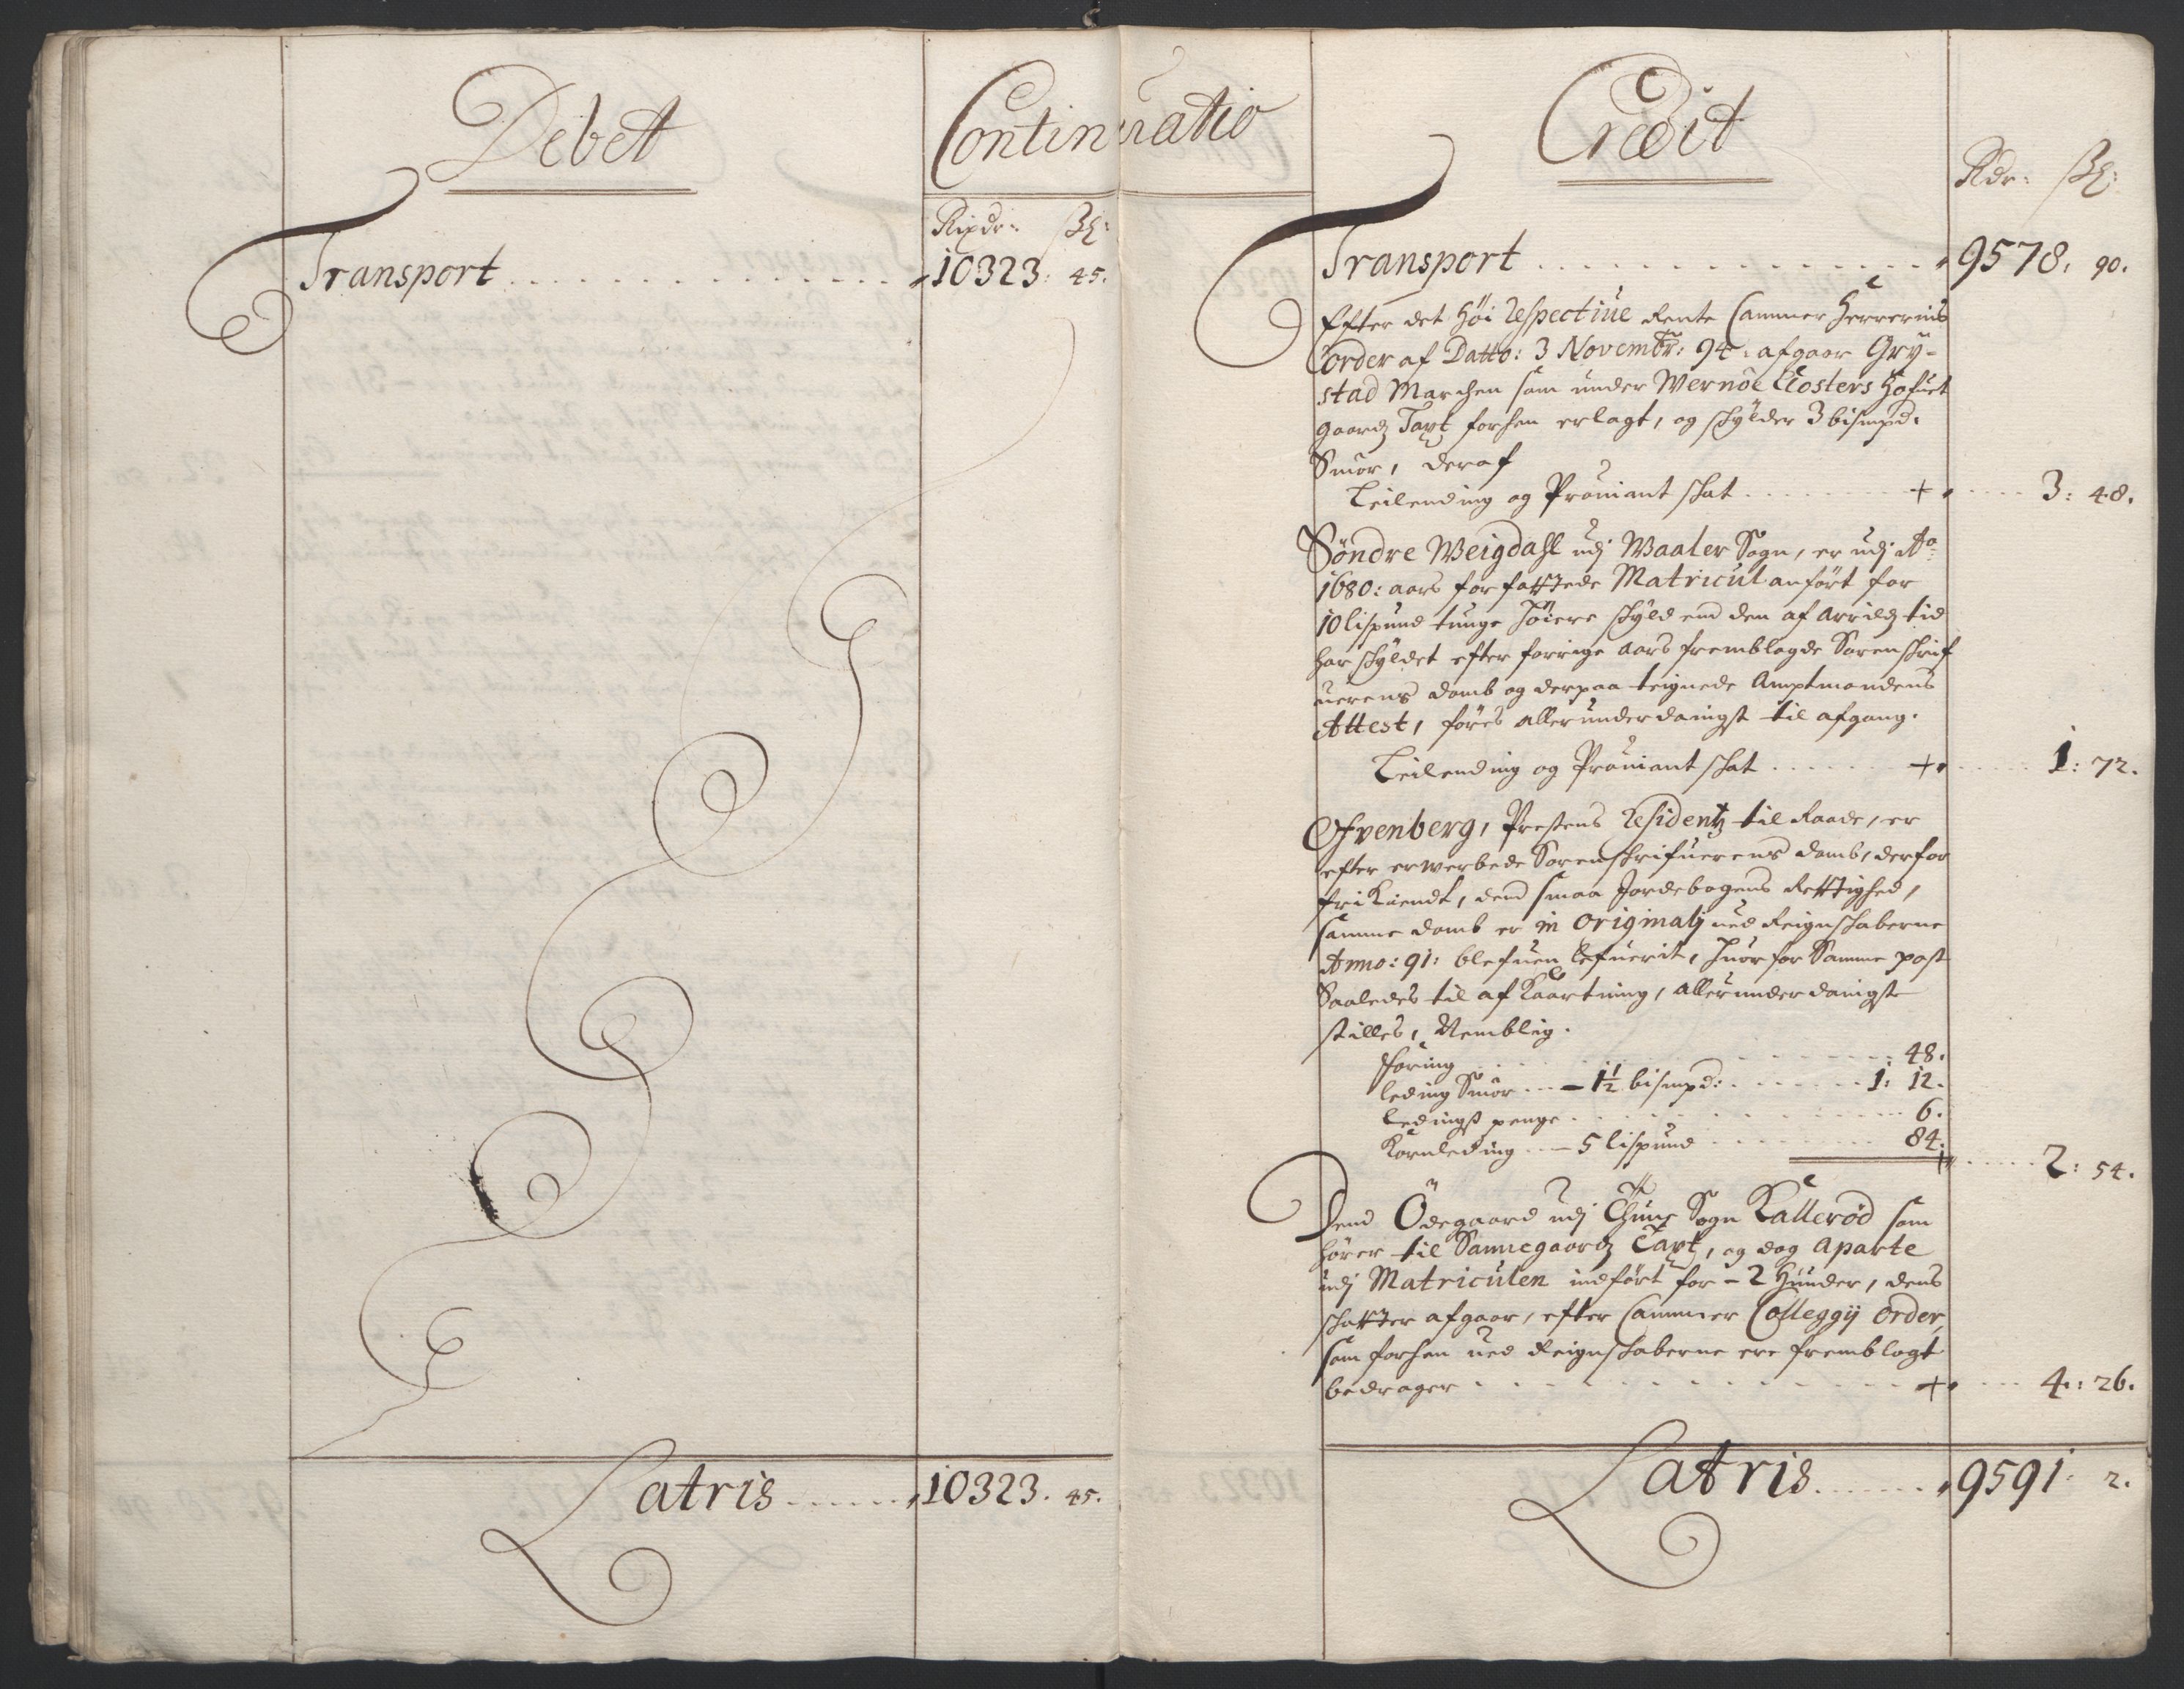 Debet
Continuatio
Rixdr: ß:
Transport . . . . . . . . . . . . . . 10323: 45.
Latris . . . . . . 10323. 45.
Credit
Rdr: ß:
Transport . . . . . . . . . . . . . . . 9578: 90.
Efter det Höi respective Rente Cammer Herrernis
order af Datto: 3 Novembr: 94: afgaar Gry-
stad Marchen som under Wernöe Closters Hofuet
gaardz Taxt forhen erlagt, og schylder 3 bismpd:
Smör, deraf
Leilending og Prouiant schat . . . . . . . + . . . . . 3: 48.
Söndre Weigdahl udj Waaler Sogn, er udj Ao
1680: aars forfattede Matricul anfört for
10 lispund tunge höiere schyld end den af arrildz tid
har schyldet efter forrige aars fremblagde Sorenschrif
uerens domb og derpaa teignede Amptmandens
Attest, föres allerunderdanigst til afgang.
Leilending og Prouiant schat . . . . . . + . . . . . 1: 72.
Ofvenberg, Prestens Residentz til Raade, er
efter erwerbede Sorenschrifuerens domb, derfor
fri Kiendt, dend smaa Jordebogens Rettighed,
samme domb er in originalj ued Reignschaberne
Anno: 91: blefuen lefuerit, huorfor Samme post
Saaledes til afKaartning, allerunderdanigste
stilles, Nemblig.
Foring . . . . . . . . . . . . . 48.
leding Smör . . . – 1½ bismpd: . . . . . . . 1: 12.
Ledingß penge . . . . . . . . . . . . . 6.
Kornleding . . – 5 lispund . . . . . . . . 84:
. . . . . 2: 54.
Dend Ödegaard udj Thune Sogn Kalleröd som
hörer til Sannegaardz Taxt, og dog aparte
udj Matriculen indfört for – 2 Hunder, dens
schatter afgaar, efter Cammer Colleggij order,
som forhen ued Reignschaberne ere fremblagt
bedrager . . . . . . . . . . . . . . + . . . 4: 26.
Latris . . . . . . . 9591: 2.